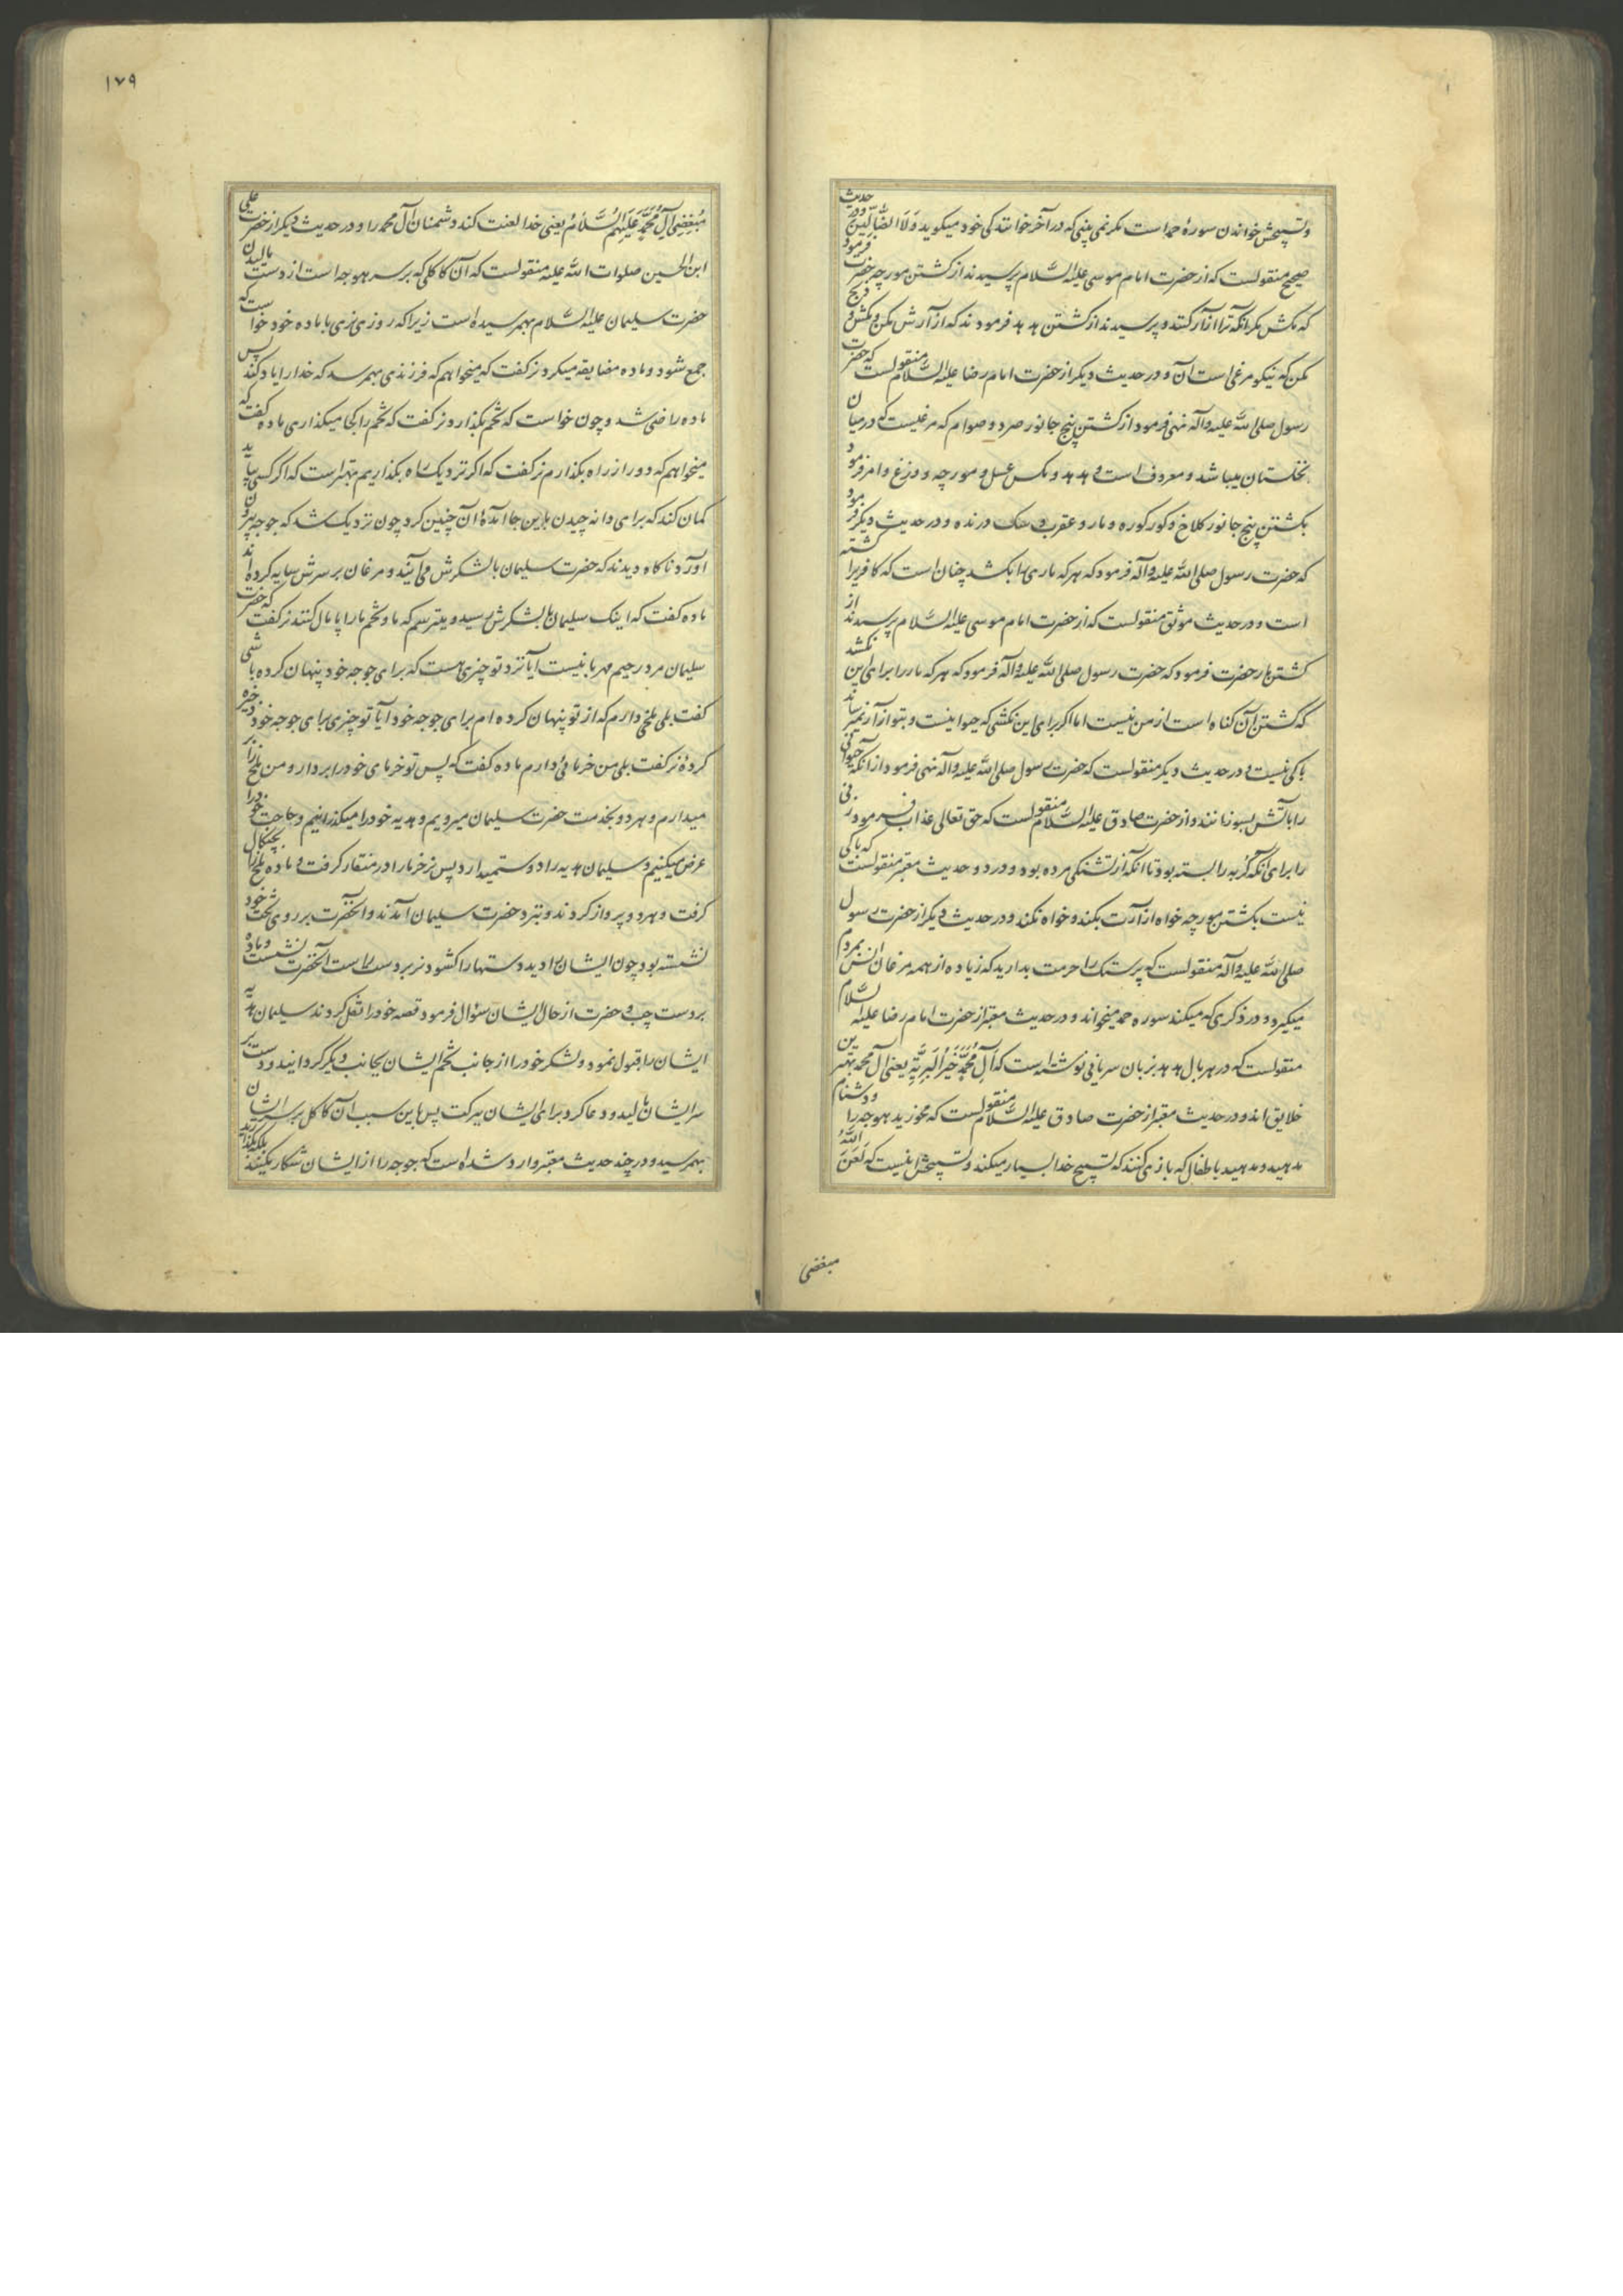 وتسبیحش خواندن سورهٔ حمد است مگر نمی بینی که در آخر خوانندگی خود میگوید وَلَا الضَّالّینَ و در حدیث
صحیح منقولست که از حضرت امام موسی علیه السّلام پرسیدند از کشتن مورچه حضرت فرمود
که مکش مگر آنکه ترا آزار کند و پرسیدند از کشتن هدهد فرمودند که آزارش مکن و مکش و ذبح
مکن که نیکو مرغی است آن و در حدیث دیگر از حضرت امام رضا علیه السّلام منقولست که حضرت
رسول صلی الله علیه وآله نهی فرمود از کشتن پنج جانور صرد و صوام که مرغیست که در میان
نخلستان میباشد و معروف است و هدهد و مکس عسل و مورچه و وزغ و امر فرمود
بکشتن پنج جانور کلاغ و کورکوره و مار و عقرب و سک درنده و در حدیث دیگر فرمود
که حضرت رسول صلی الله علیه وآله فرمود که هر که ماری را بکشد چنان است که کافریرا کشته
است و در حدیث موثق منقولست که از حضرت امام موسی علیه السّلام پرسیدند از
کشتن مار حضرت فرمود که حضرت رسول صلی الله علیه وآله فرمود که هر که مار را برای این نکشد
که کشتن آن کناه است از من نیست اما اکر برای این نکشی که حیوانیست و بتو آزار نمیرساند
باکی نیست و در حدیث دیکر منقولست که حضرت رسول صلی الله علیه وآله نهی فرمود از آنکه حیوانی
را بآتش بسوزانند و از حضرت صادق علیه السّلام منقولست که حق تعالی عذاب فرمود زنی
را برای آنکه گربه را بسته بود تا آنکه از تشنگی مرده بود و در دو حدیث معتبر منقولست که باکی
نیست بکشتن مورچه خواه آزارت بکند و خواه نکند و در حدیث دیکر از حضرت رسول
صلی الله علیه وآله منقولست که پرستک را حرمت بدارید که زیاده از همه مرغان انس بمردم
میگیرد و در ذکری که میکند سوره حمد میخواند و در حدیث معتبر از حضرت امام رضا علیه السّلام
منقولست که در هر بال هدهد بزبان سریانی نوشته است که آلِ مُحَمَّدٍ خَیْرُ الْبَرِیَّةِ یعنی آل محمد بهترین
خلایق اند و در حدیث معتبر از حضرت صادق علیه السّلام منقولست که مخورید هوجه را و دشنام
مدهید و مدهید باطفال که بازی کنند که تسبیح خدا بسیار میکند و تسبیحش اینست که لَعَنَ اللّهُ
مبغضی
۱۷۹
مُبْغِضِی آلِ مُحَمَّدٍ عَلَیْهِمُ السَّلَامُ یعنی خدا لعنت کند دشمنان آل محمد را و در حدیث دیکر از حضرت علی
ابن الحسین صلوات الله علیه منقولست که آن کاکلی که بر سر هوجه است از دست مالیدن
حضرت سلیمان علیه السّلام بهم رسیده است زیرا که روزی نری با ماده خود خواست که
جمع شود و ماده مضایقه میکرد نر کفت که میخواهم که فرزندی بهم رسد که خدا را یاد کند پس
ماده راضی شد و چون خواست که تخم بگذارد نر کفت که تخم را کجا میکذاری ماده کفت که
میخواهم که دور از راه بکذارم نر کفت که اکر نزدیک راه بکذاریم بهتر است که اکر کسی بیاید
کمان کند که برای دانه چیدن باین جا آمدهٔ آن چنین کرد چون نزدیک شد که جوجه بیرون
آورد ناکاه دیدند که حضرت سلیمان با لشکرش می آیند و مرغان بر سرش سایه کرده اند
ماده کفت که اینک سلیمان با لشکرش رسید و میترسم که ما و تخم ما را پامال کنند نر کفت که حضرت
سلیمان مرد رحیم مهربانیست آیا نزد تو چیزی هست که برای جوجه خود پنهان کرده باشی
کفت بلی ملخی دارم که از تو پنهان کرده ام برای جوجه خود آیا تو چیزی برای جوجه خود ذخیره
کردهٔ نر کفت بلی من خرمائی دارم ماده کفت که پس تو خرمای خود را بردار و من ملخ را بر
میدارم و هر دو بخدمت حضرت سلیمان میرویم و هدیه خود را میکذرانیم و حاجت خود را
عرض میکنیم و سلیمان هدیه را دوست میدارد پس نر خرما را در منقار کرفت و ماده ملخ را بچنکال
کرفت و هر دو پرواز کردند و بنزد حضرت سلیمان آمدند و آنحضرت بر روی تخت خود
نشسته بود چون ایشان را دید دستها را کشود نر بر دست راست آنحضرت نشست و ماده
بر دست چپ و حضرت از حال ایشان سؤال فرمود قصه خود را نقل کردند سلیمان هدیه
ایشان را قبول نمود و لشکر خود را از جانب تخم ایشان بجانب دیکر کردانید و دست بر
سر ایشان مالید و دعا کرد برای ایشان ببرکت پس باین سبب آن کاکل بر سر ایشان
بهم رسید و در چند حدیث معتبر وارد شده است که جوجه را از ایشان شکار نکنید بلکه بگذارید